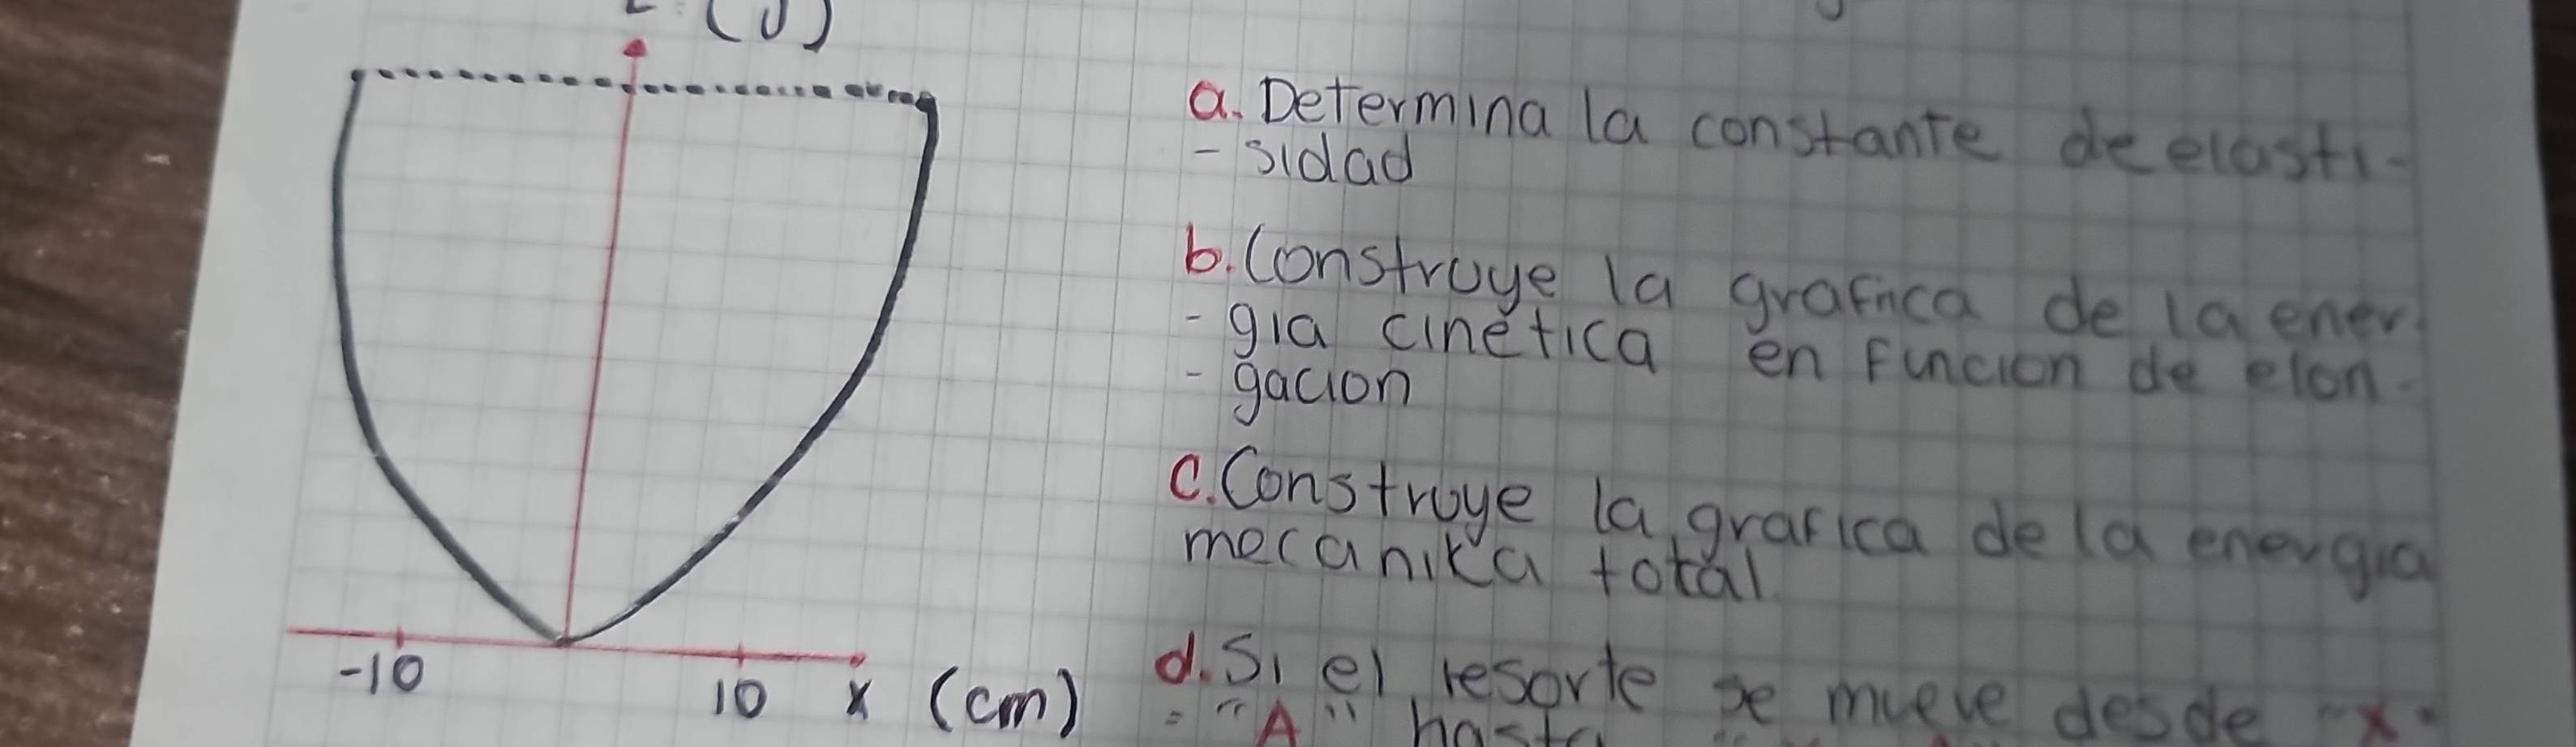 (J)
a. Determina la constante de elasti-
- sidad
b. Construye la grafica de la ener-
- gia cinética en funcion de elon-
- gacion
c. Construye la grafica de la energia
mecanika total
d. Si el resorte se mueve desde "x"
= "A" hasta
-10
10 x (cm)